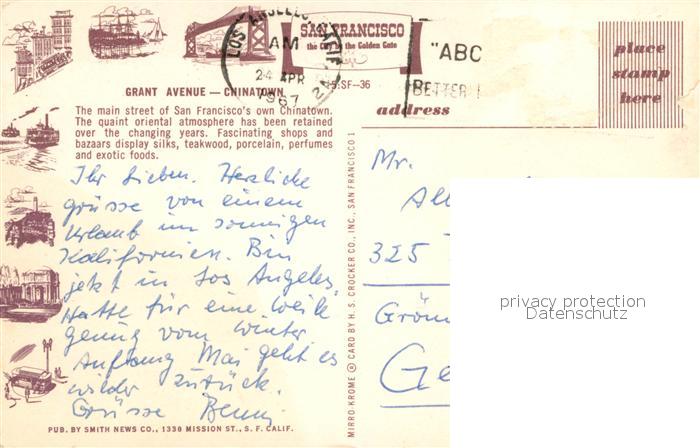 SAN FRANCISCO
the City by the Golden Gate
LOS ANGELES, CALIF
AM
24 APR
1967
"ABC
BETTER
place
stamp
here
GRANT AVENUE — CHINATOWN
SF-36
address
The main street of San Francisco's own Chinatown.
The quaint oriental atmosphere has been retained
over the changing years. Fascinating shops and
bazaars display silks, teakwood, porcelain, perfumes
and exotic foods.
Ihr Lieben. Herzliche
grüsse von einem
Urlaub im sonnigen
Kalifornien. Bin
jetzt in Los Angeles.
Hatte für eine Weile
genug vom Winter
Anfang Mai geht es
wieder zurück.
Grüsse Benny
PUB. BY SMITH NEWS CO., 1330 MISSION ST., S. F. CALIF.
MIRRO-KROME ® CARD BY H. S. CROCKER CO., INC., SAN FRANCISCO 1
Mr.
325
privacy protection
Datenschutz